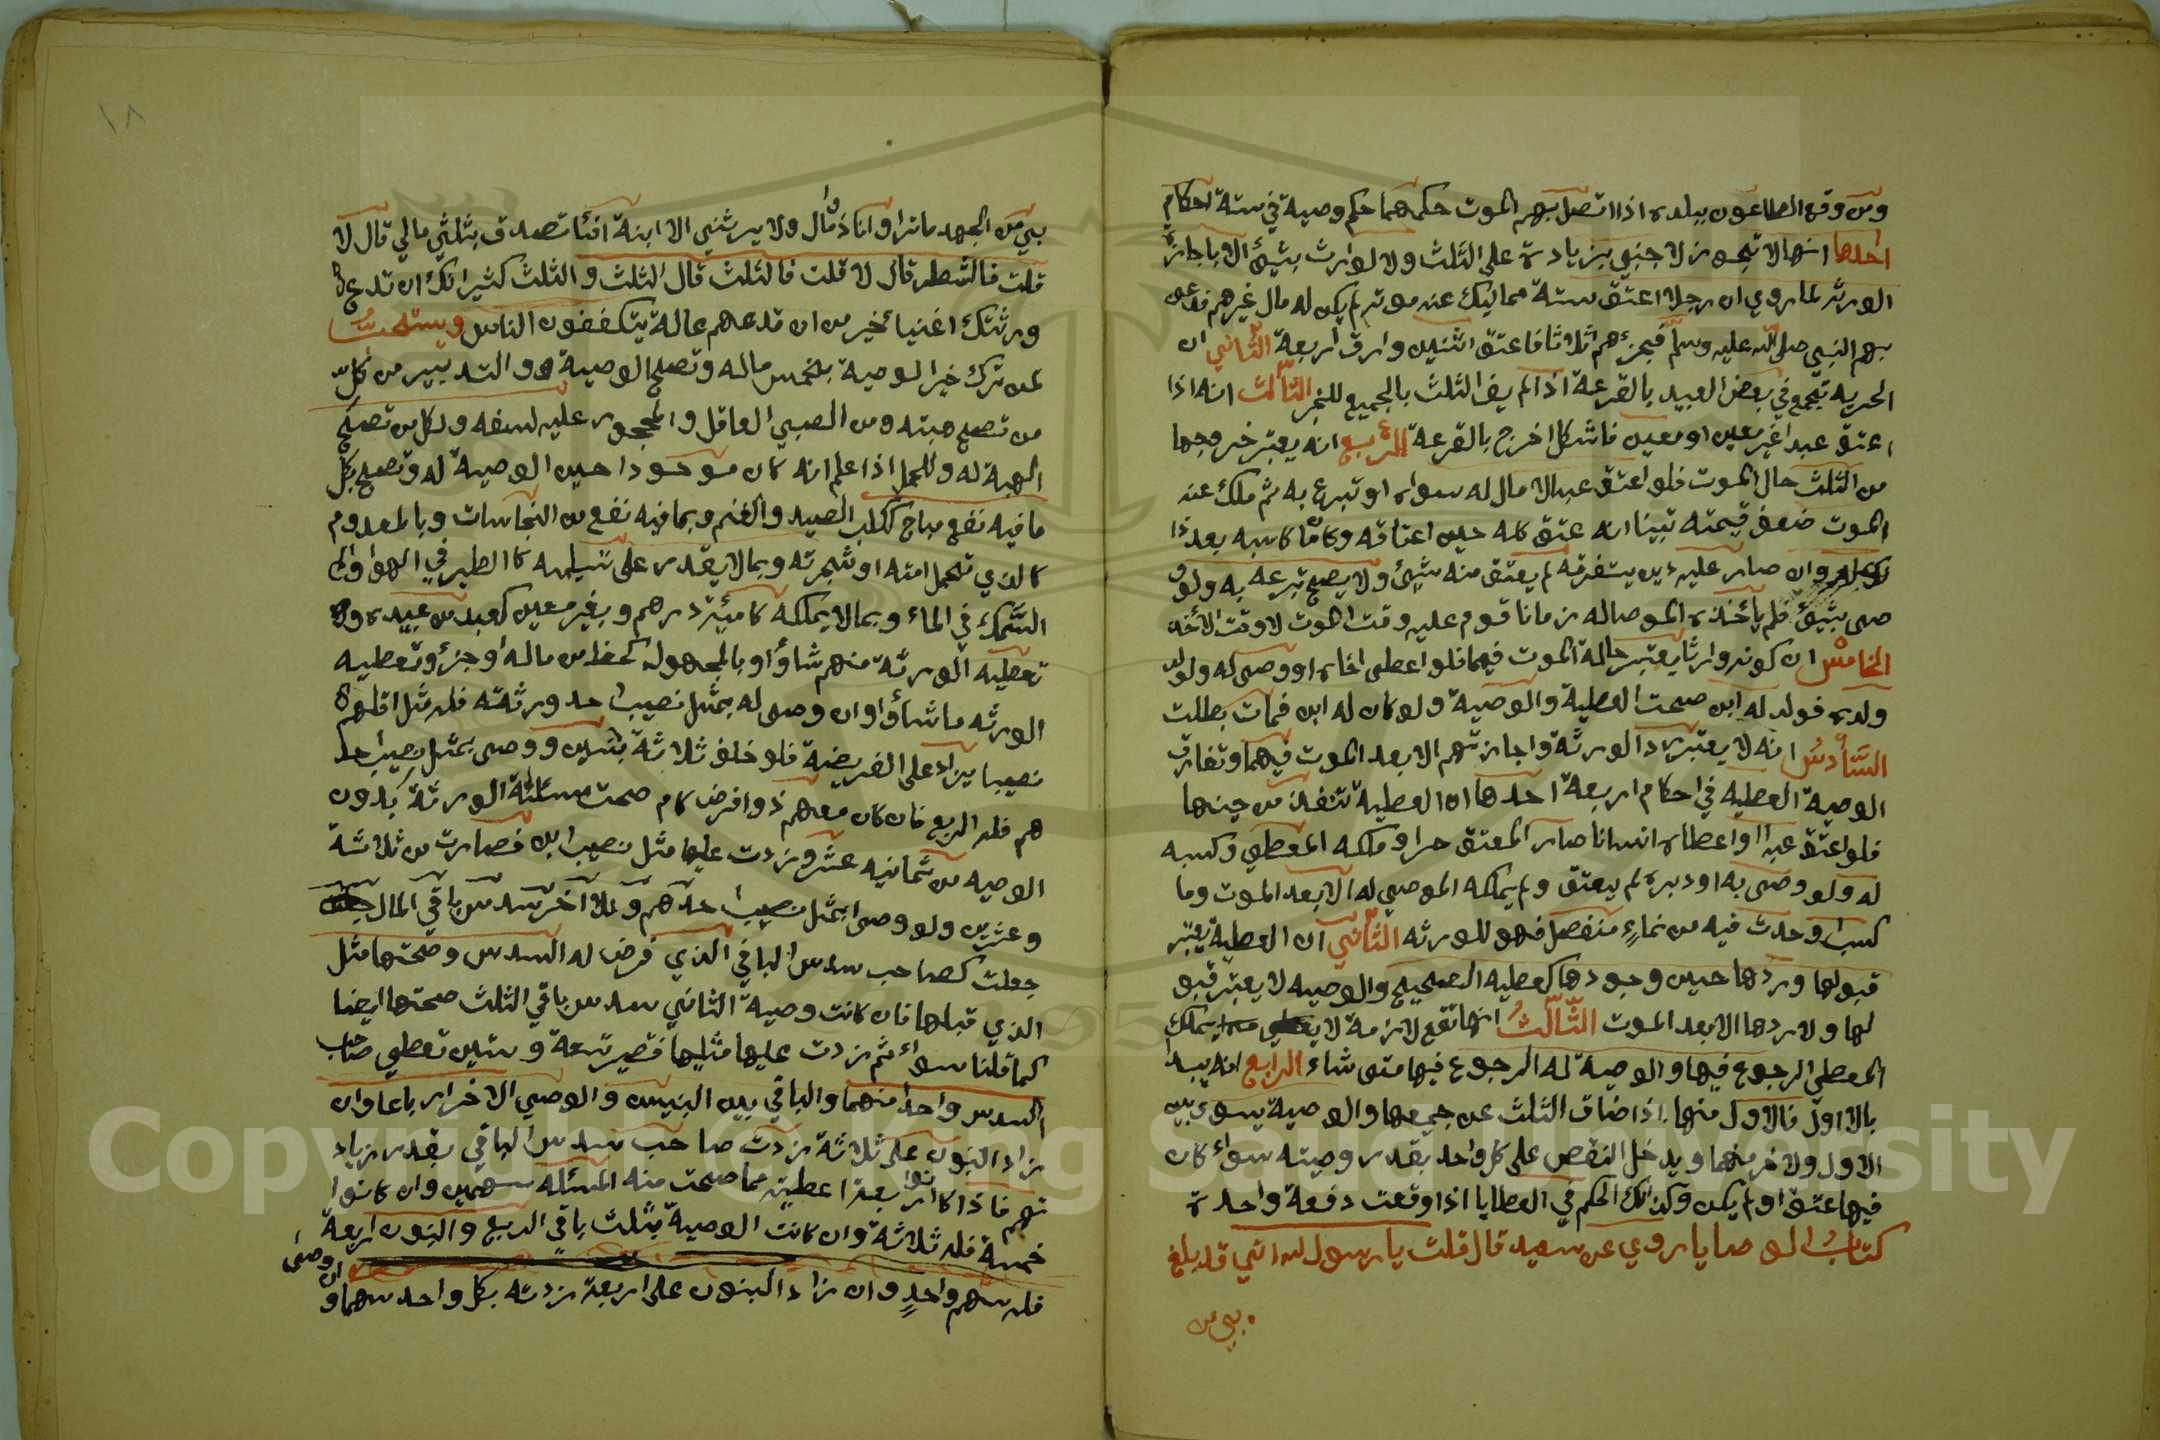 ومن وقع الطاعون ببلده اذا اتصل بهم الموت حكمهما حكم وصية في ستة احكام
احدها انها لا تجوز لاجنبي بزيادة على الثلث ولا لوارث بشيء الا باجازة
الورثة لما روي ان رجلا اعتق ستة مماليك عند موته لم يكن له مال غيرهم فدعى
بهم النبي صلى الله عليه وسلم فجزءهم اثلاثا فاعتق اثنين وارق اربعة الثاني ان
الحرية تجمع في بعض العبيد بالقرعة اذا لم يف الثلث بالجميع للخبر الثالث انه اذا
اعتق عبدا غير معين او معين فاشكل اخرج بالقرعة الرابع انه يعتبر خروجها
من الثلث حال الموت فلو اعتق عبدا لا مال له سواه او تبرع به ثم ملك عند
الموت ضعف قيمته تبينا انه عتق كله حين اعتاقه وكان ما كسبه بعد ذا
وان صار عليه دين يستغرقه لم يعتق منه شيئ ولا يصح تبرعه به ولو و
صى بشيئ فلم يأخذه الموصا له زمانا قوم عليه وقت الموت لا وقت الأخذ
الخامس ان كونه وارثا يعتبر حالة الموت فيهما فلو اعطى اخاه او وصى له ولا
ولد له فولد له ابن صحت العطية والوصية ولو كان له ابن فمات بطلت
السادس انه لا يعتبر رد الورثة واجازتهم الا بعد الموت فيهما وتفارق
الوصية العطية في احكام اربعة احدها ان العطية تنفذ من حينها
فلو اعتق عبدا او اعطاه انسانا صار المعتق حرا وملكه المعطي وكسبه
له ولو وصى به او دبره لم يعتق ولم يملكه الموصي له الا بعد الموت وما
كسب او حدث فيه من نماء منفصل فهو للورثه الثاني ان العطية يعتبر
قبولها وردها حين وجودها كعطية الصحيح والوصيه لا يعتبر قبو
لها ولا ردها الا بعد الموت الثالث انها تقع لازمة لا يملك
المعطي الرجوع فيها والوصية له الرجوع فيها متى شاء الرابع انه يبدا
بالاول فالاول منها اذا ضاق الثلث عن جميعها والوصية يسوى بين
الاول والاخر منهما ويدخل النقص على كل واحد بقدر وصيته سواء كان
فيها عتق او لم يكن وكذالك الحكم في العطايا اذا وقعت دفعة واحدة
كتاب الوصايا روي عن سعيد قال قلت يا رسول الله اني قد بلغ
بي من
١٨
بي من الجهد ما ترا وانا ذو مال ولا يرثني الا ابنة افأتصدق بثلثي مالي قال لا
قلت فالشطر قال لا قلت فالثلث قال الثلث والثلث كثير انك ان تدع
ورثتك اغنياء خير من ان تدعهم عالة يتكففون الناس ويستحب
لمن ترك خيرا لوصية بخمس ماله وتصح الوصية والتدبير من كل
من تصح هبته ومن الصبي العاقل والمحجور عليه لسفه ولكل من تصح
الهبة له وللحمل اذا علم انه كان موجودا حين الوصية له وتصح بكل
ما فيه نفع مباح ككلب الصيد والغنم وبما فيه نفع من النجاسات وبالمعدوم
كالذي تحمل امته او شجرته وبما لا يقدر على تسليمه كالطير في الهوا وا
السمك في الماء وبما لا يملكه كامئة درهم وبغير معين كعبد من عبيده و
تعطيه الورثة منهم شاؤا او بالمجهول كحظ من ماله او جزء وتعطيه
الورثه ما شاؤا وان وصى له بمثل نصيب احد ورثته فله مثل اقلهم
نصيبا يزاد على الفريضة فلو خلف ثلاثة بنين ووصى بمثل نصيب احد
هم فله الربع فان كان معهم ذوا فرض كام صحت مسئلة الورثة بدون
الوصيه من ثمانيه عشر وزدت عليها مثل نصيب ابن فصارت من ثلاثة
وعشرين ولو وصى بمثل نصيب احدهم ولأخر بسدس باقي المال
جعلت كصاحب سدس الباقي الذي فرض له السدس وصحتها مثل
الذي قبلها فان كانت وصية الثاني سدس باقي الثلث صححتها ايضا
كما قلنا سواء ثم زدت عليها مثليها فتصير تسعة وستين تعطي صاحب
السدس واحدا منهما والباقي بين البنين والوصي الاخر ارباعا وان
زاد البنون على ثلاثة زدت صاحب سدس الباقي بقدر زياد
تهم فاذا كانوا اربعة اعطيته مما صحت منه المسئلة سهمين وان كانوا
خمسة فله ثلاثة وان كانت الوصية بثلث باقي الربع والبنون اربعة
فله سهم واحد وان زاد البنون على اربعة زدته بكل واحد سهما و
ان وصى